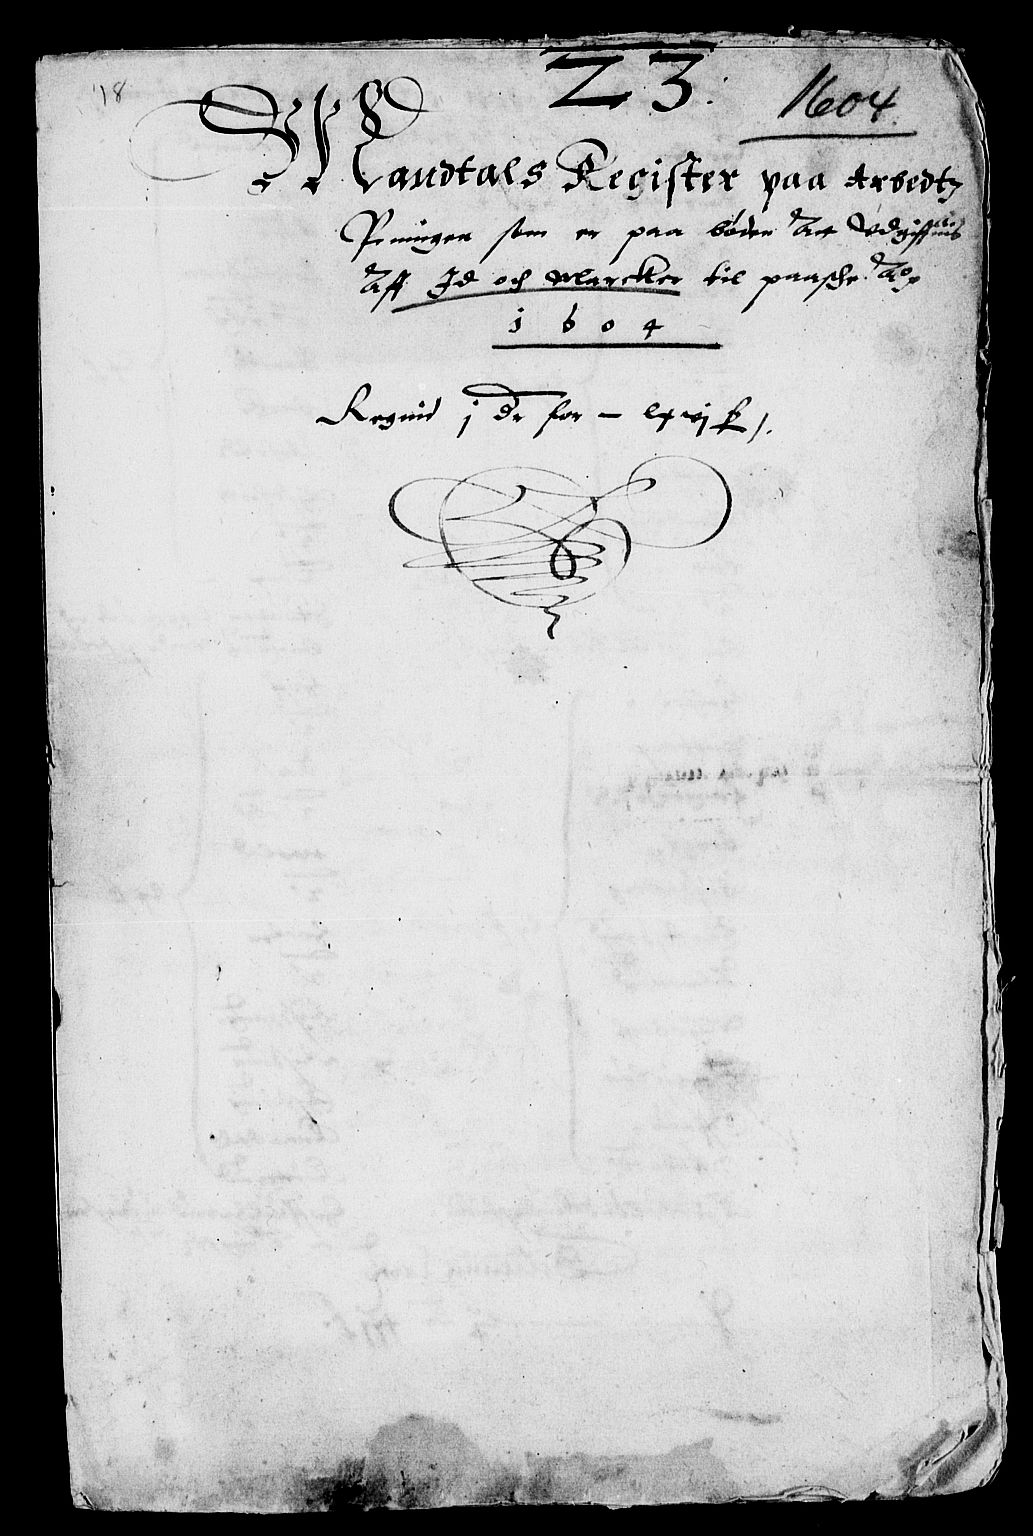 18
23.
1604.
Mandtals Register paa Arbedtz
Peningen som er paa böden At Udgiffuis
Aff Id och Marcker til paasche Ao
1604
Regnid j dr for – lxvj ß